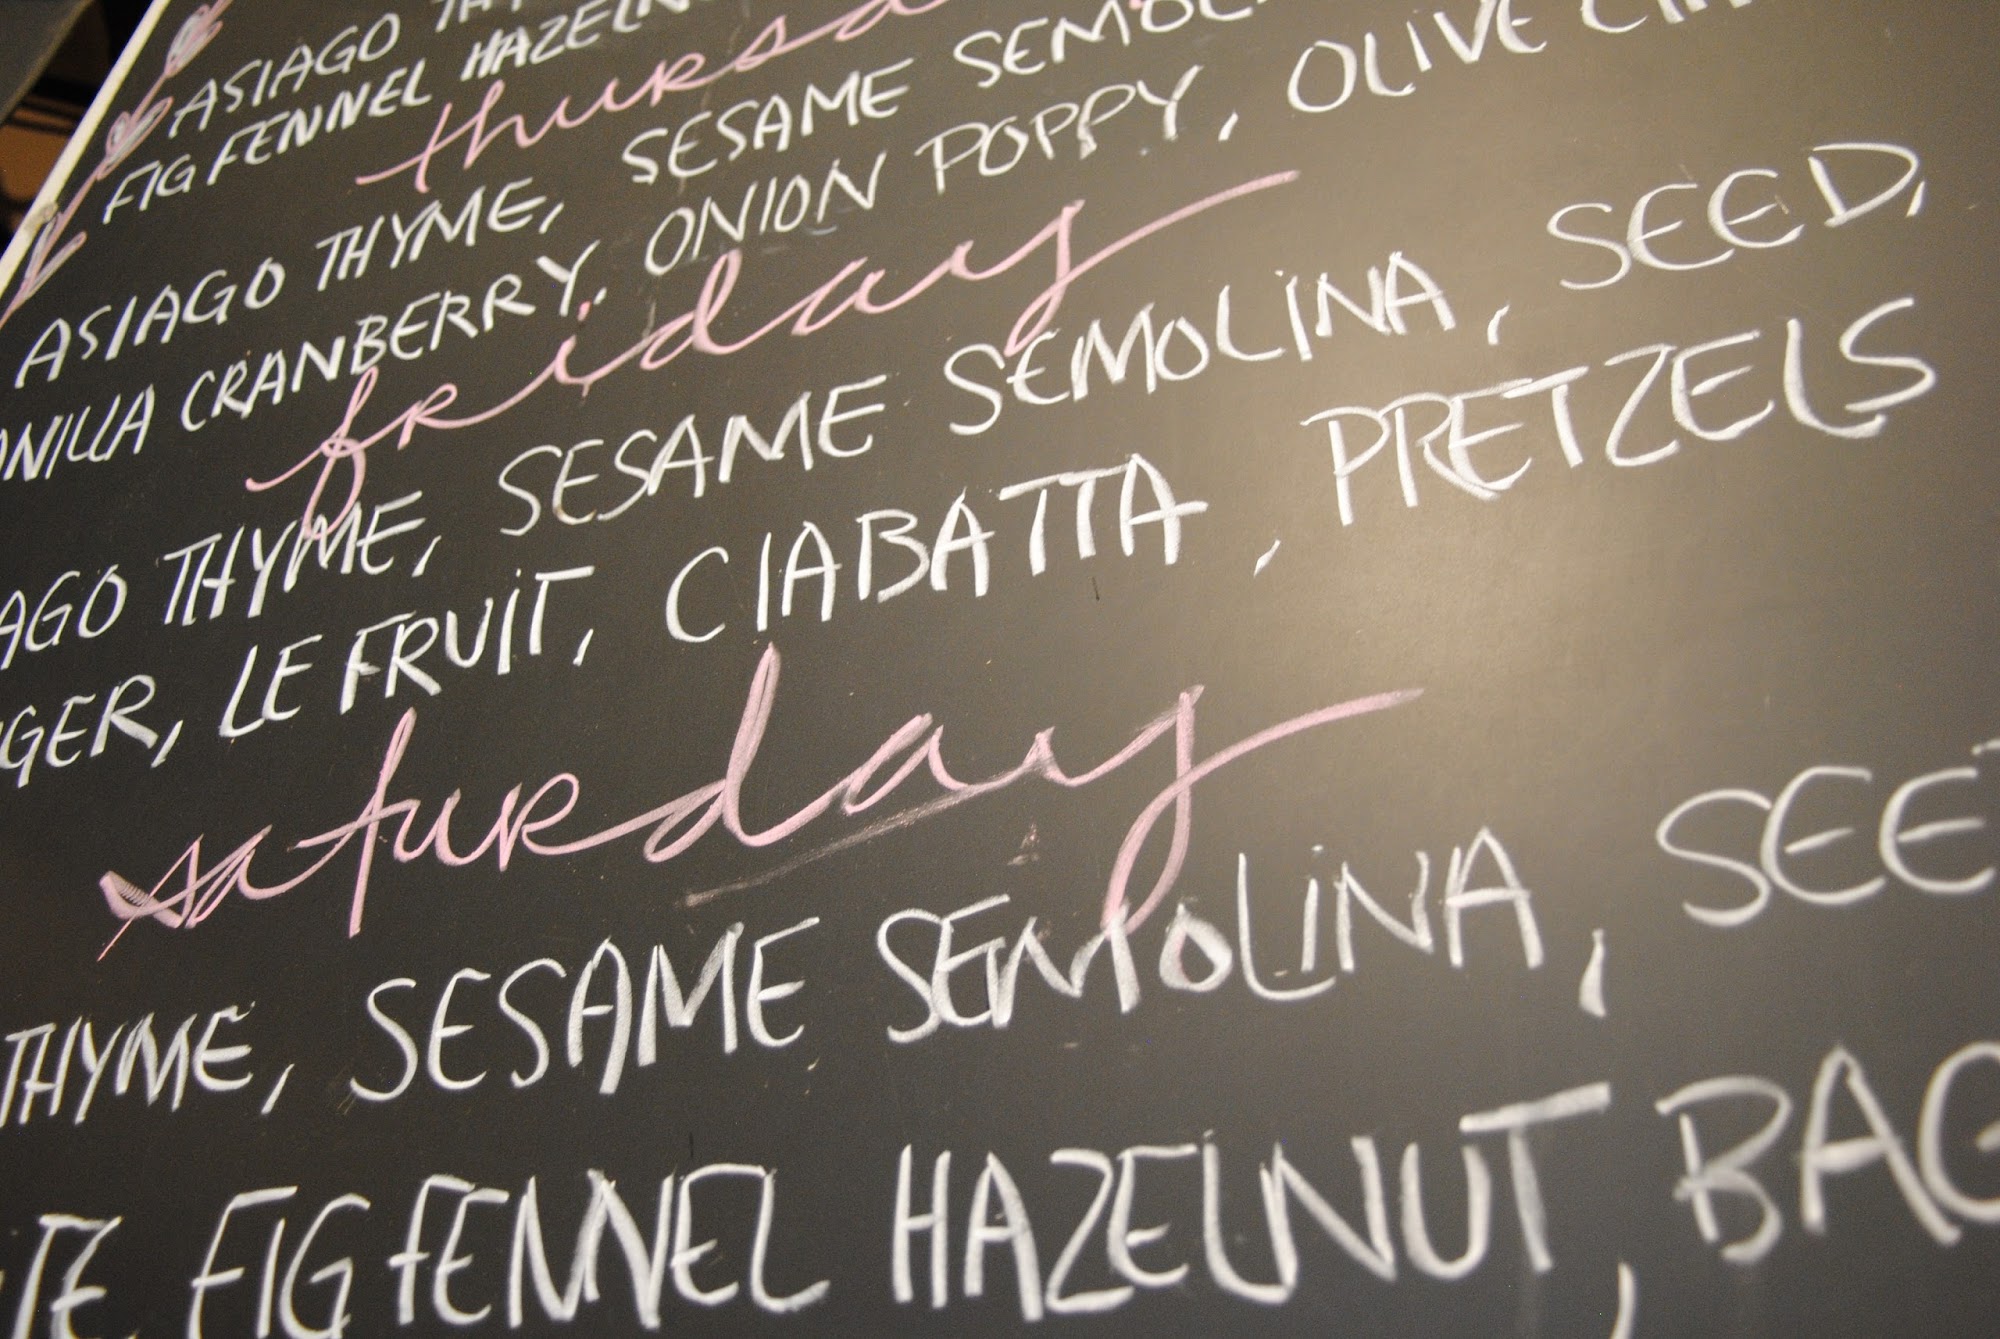 ASIAGO
FIG FENNEL
ASIAGO THYME, SESAME
CRANBERRY, ONION POPPY, OLIVE
friday
THYME, SESAME SEMOLINA, SEED,
LE FRUIT, CIABATTA, PRETZELS
saturday
THYME, SESAME SEMOLINA,
FIG FENNEL HAZELNUT,